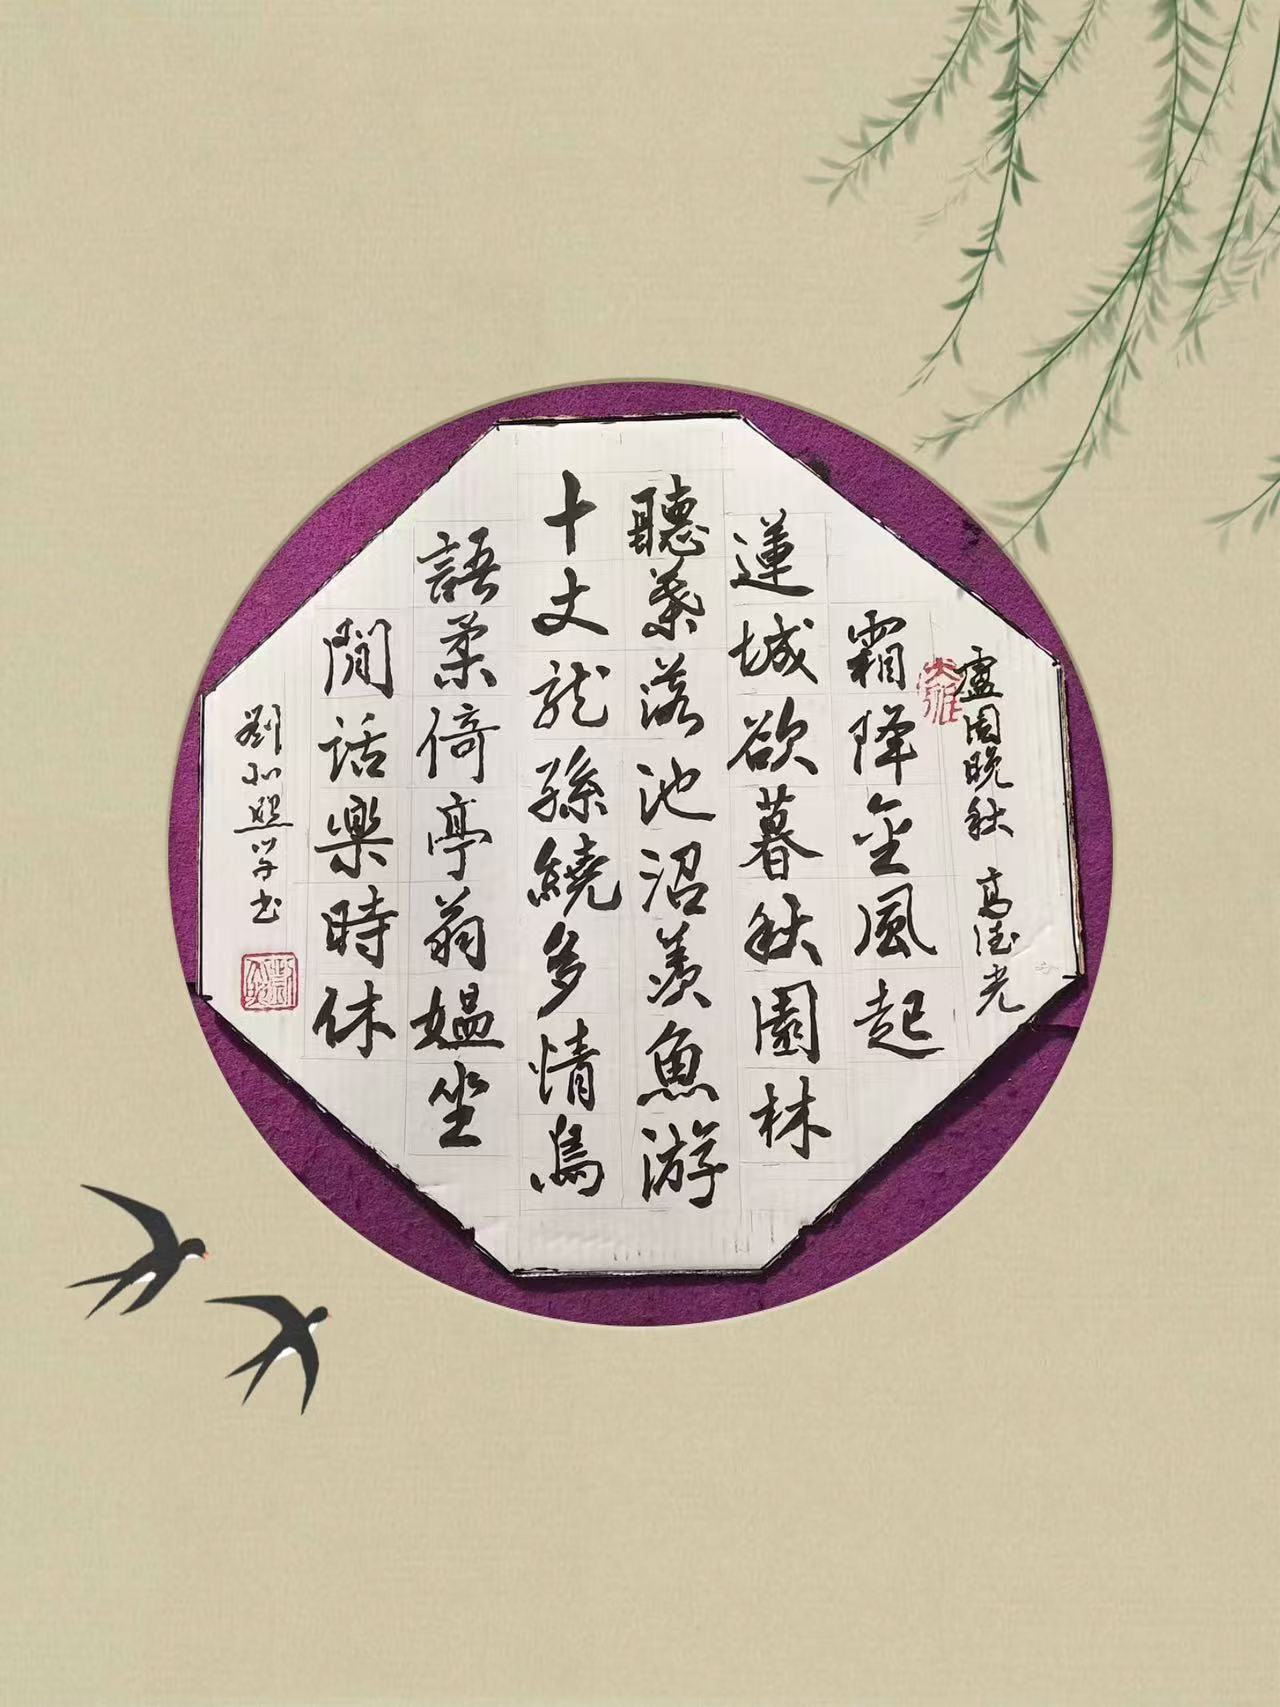 盧園晚秋 高德光
霜降金風起
蓮城欲暮秋園林
聽葉落池沼羨魚游
十丈龍孫繞多情鳥
語柔倚亭翁媼坐
閒話樂時休
劉和照学书